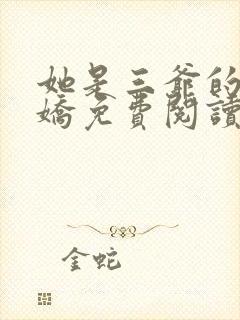 她是三爺的
嬌免費閱讀
金蛇